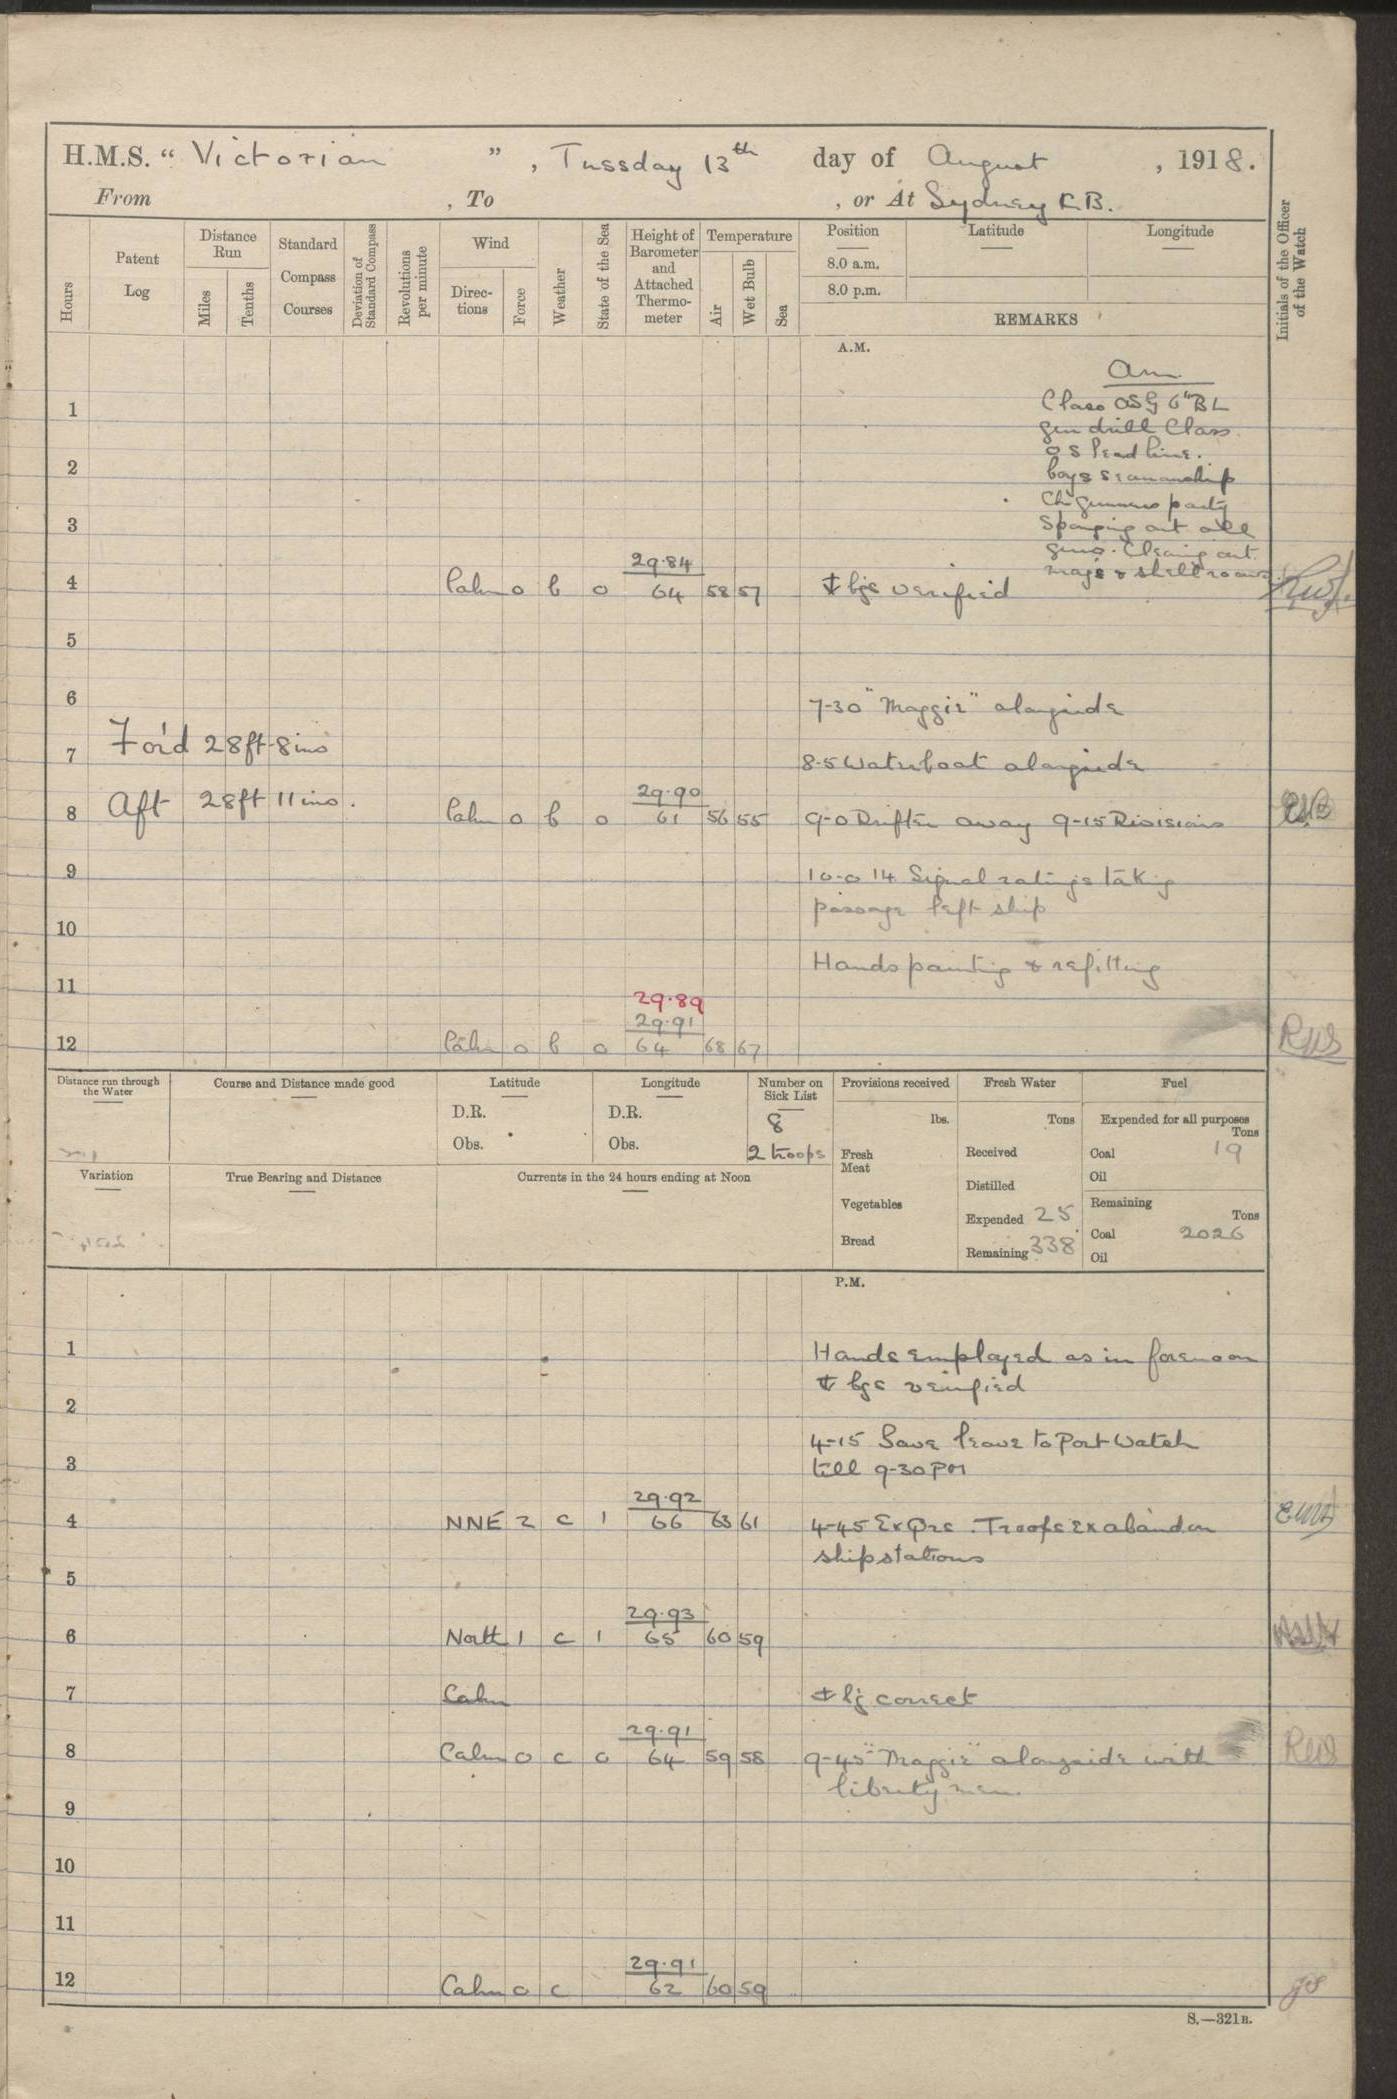 H.M.S. “ Victorian ” , Tussday 13th day of August , 1918.
From , To , or At Sydney C.B.
Hours
Patent Log
Distance Run
Miles
Tenths
Standard Compass Courses
Deviation of Standard Compass
Revolutions per minute
Wind
Direc-tions
Force
Weather
State of the Sea
Height of Barometer and Attached Thermo-meter
Temperature
Air
Wet Bulb
Sea
Position
8.0 a.m.
8.0 p.m.
Latitude
Longitude
REMARKS
Initials of the Officer of the Watch
A.M.
am
Class OSG 6" BL
1
gun drill Class
OS lead line.
2
boys seamanship
Ch Gunners party
3
Sponging out all
guns. Cleaning out
29.84
mags & shellrooms
4 Calm 0 b 0 64 58 57 verified
5
6
7-30 "Maggie" alongside
For'd 28ft 8ins
7
8-5 Waterboat alongside
29.90
Aft 28ft 11ins.
8 Calm 0 b 0 61 56 55 9-0 Drifter away 9-15 Divisions
9
10-0 14 Signal ratings taking
passage left ship
10
Hands painting & refitting
11
29.89
29.91
12 Calm 0 b 0 64 68 67 RWS
Distance run through the Water
Course and Distance made good
Latitude
D.R.
Obs.
Longitude
D.R.
Obs.
Number on Sick List
8
2 troops
Provisions received
lbs.
Fresh Meat
Vegetables
Bread
Fresh Water
Tons
Received
Distilled
Expended 25
Remaining 338
Fuel
Expended for all purposes
Tons
Coal 19
Oil
Remaining
Tons
Coal 2026
Oil
Variation
True Bearing and Distance
Currents in the 24 hours ending at Noon
P.M.
1
Hands employed as in forenoon
verified
2
4-15 leave to Port Watch
3
till 9-30 PM
29.92
4 NNE 2 c 1 66 63 61 4-45 Ex Qrs. Troops Ex abandon
ship stations
5
29.93
6 North 1 c 1 65 60 59
7 Calm correct
29.91
8 Calm 0 c 0 64 59 58 9-45 "Maggie" alongside with RWS
liberty men.
9
10
11
29.91
12 Calm 0 c 62 60 59
S.—321B.